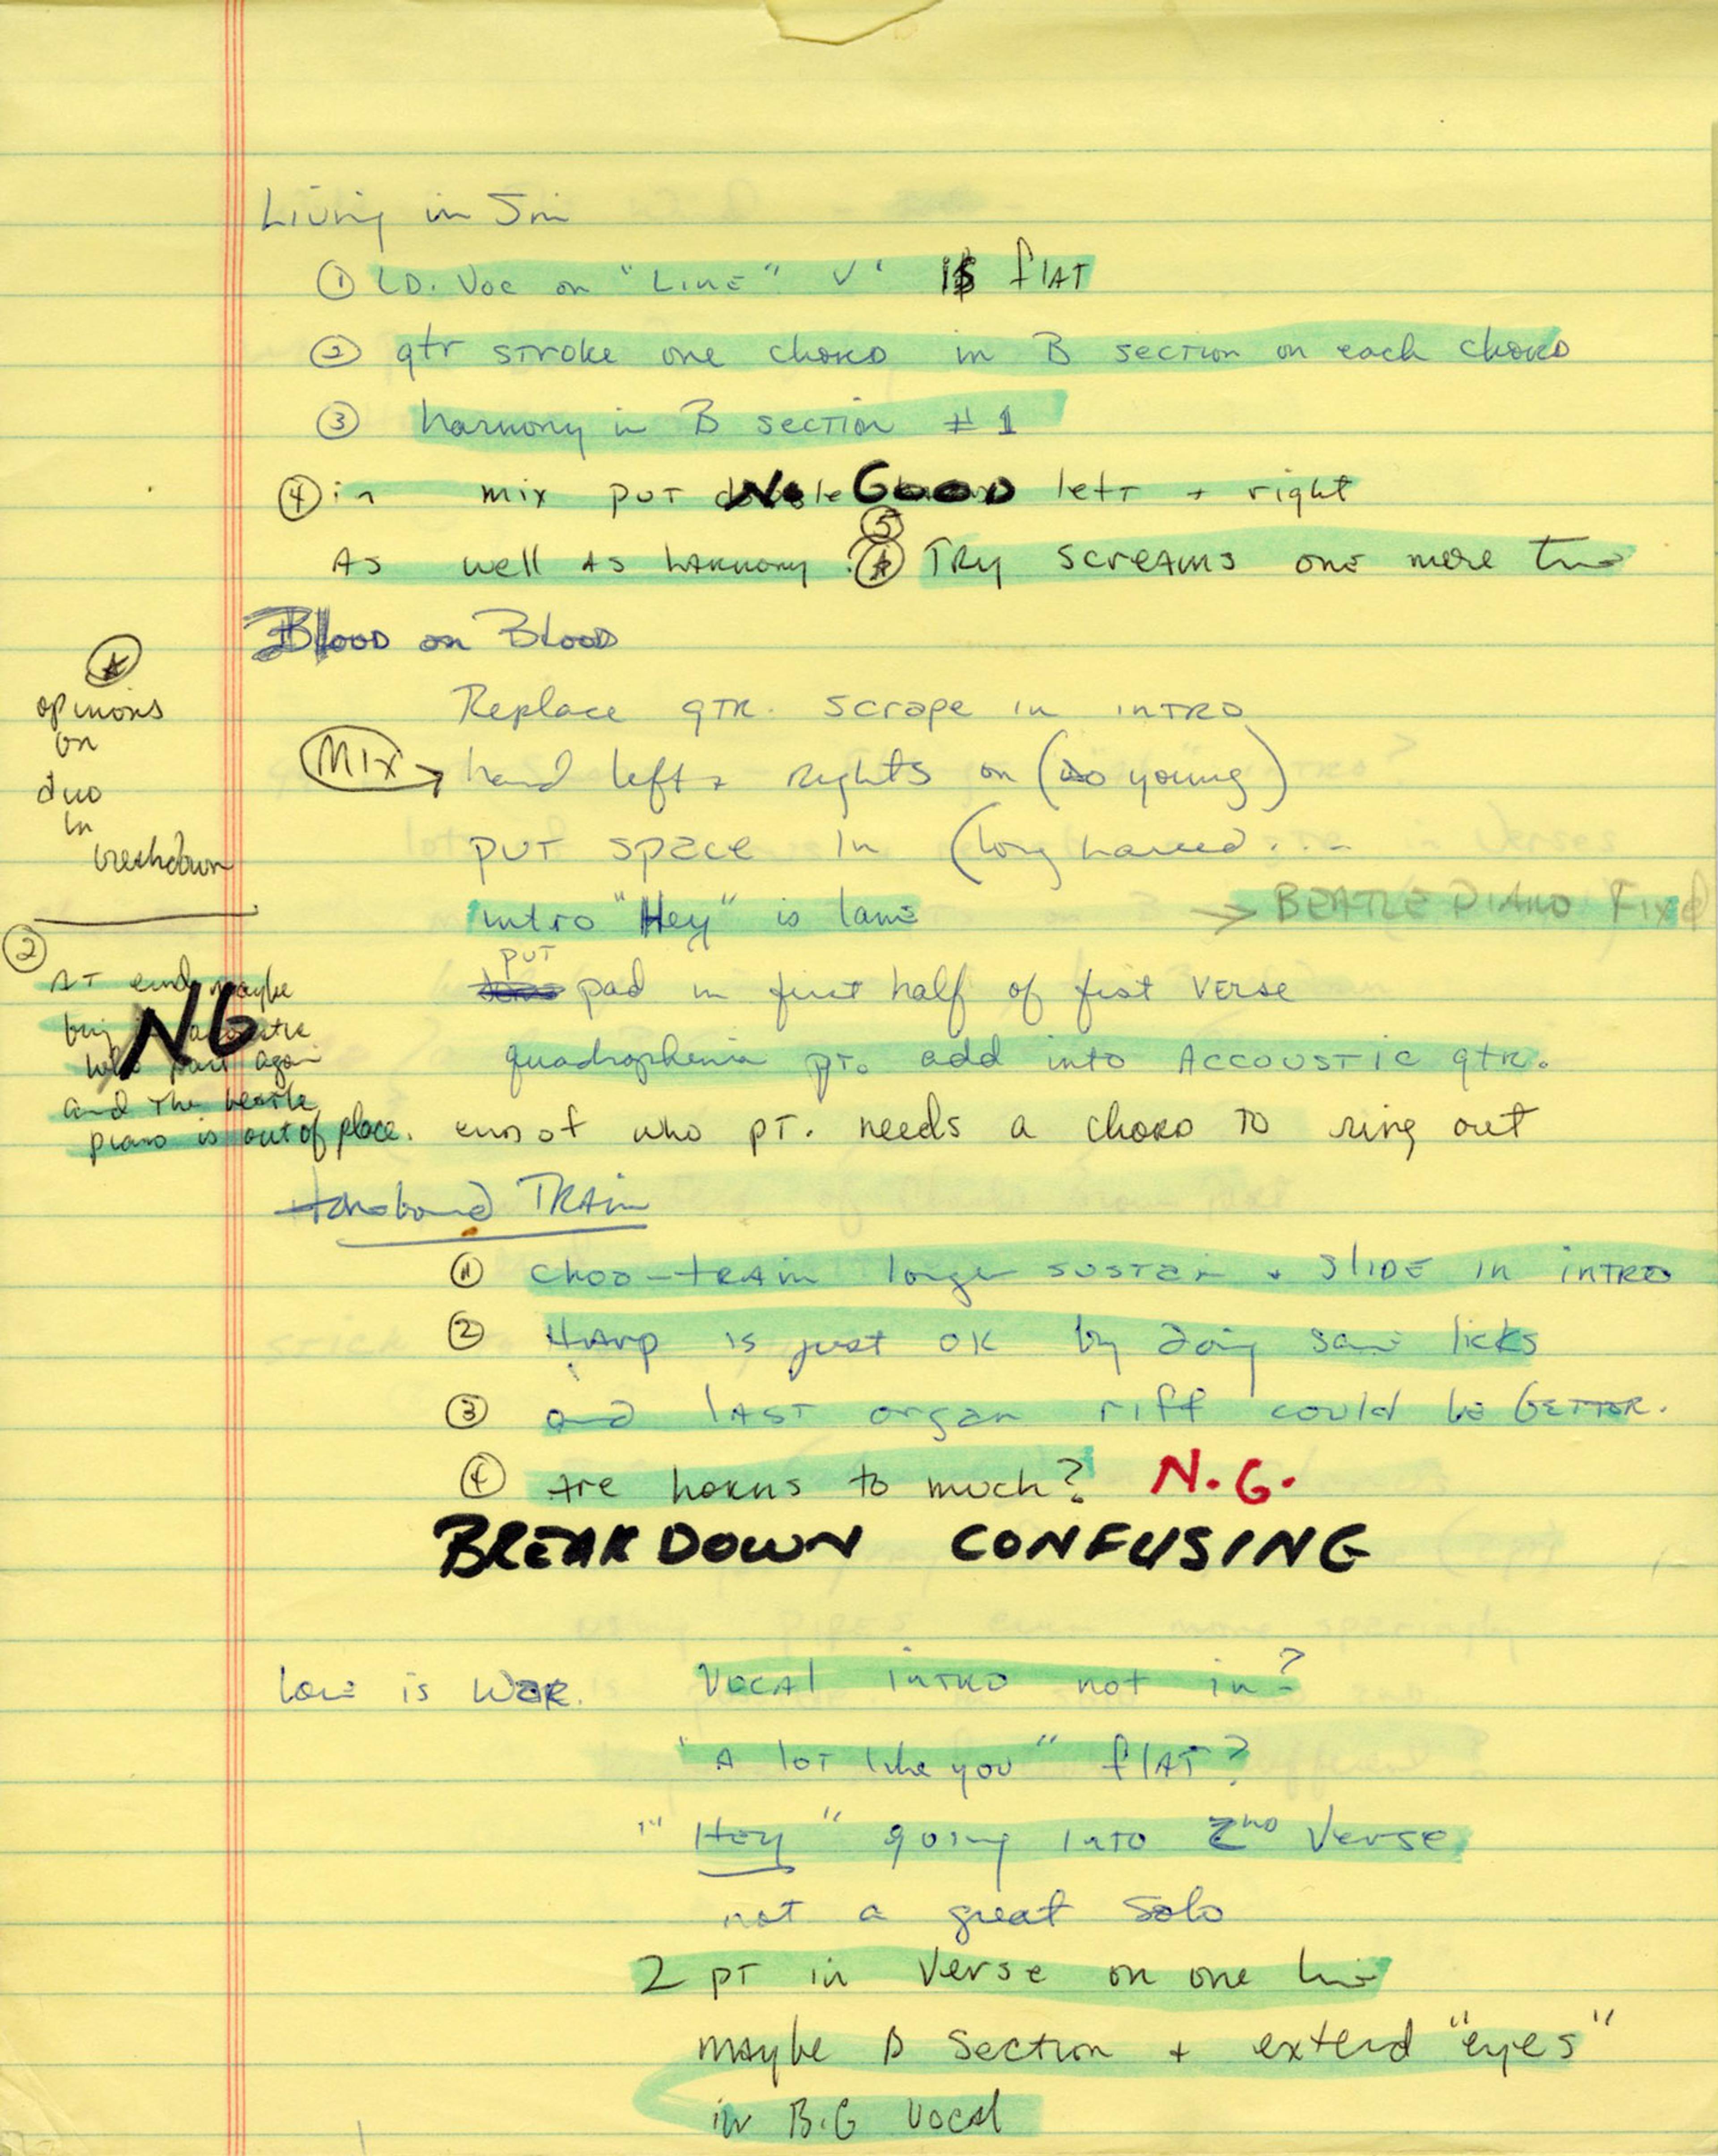 Living in Sin
① LD. Voc on "Line" V' IS flAT
② gtr stroke one chord in B section on each chord
③ harmony in B section #1
④ in mix put No Good left + right
As well as harmony ⑤ Try screams one more time
Blood on Blood
Replace gtr. scrape in intro
Mix → hard left + rights on (so young)
put space in (long haired...
intro "Hey" is lame
→ BEATLE PIANO Fixed
put
pad in first half of first verse
quadrophenia pt. add into Accoustic gtr.
end of who pt. needs a chord to ring out
opinions
on
duo
in
breakdown
②
AT end maybe
NG
again
and the beatle
piano is out of place.
Homebound Train
① choo-train longer sustain + slide in intro
② Harp is just ok by doing same licks
③ and last organ riff could be better.
④ Are horns to much? N.G.
BREAKDOWN CONFUSING
Love is War. Vocal intro not in?
"A lot like you" flat?
"Hey" going into 2nd Verse
not a great solo
2 pt in Verse on one line
maybe B Section + extend "eyes"
in B.G Vocal